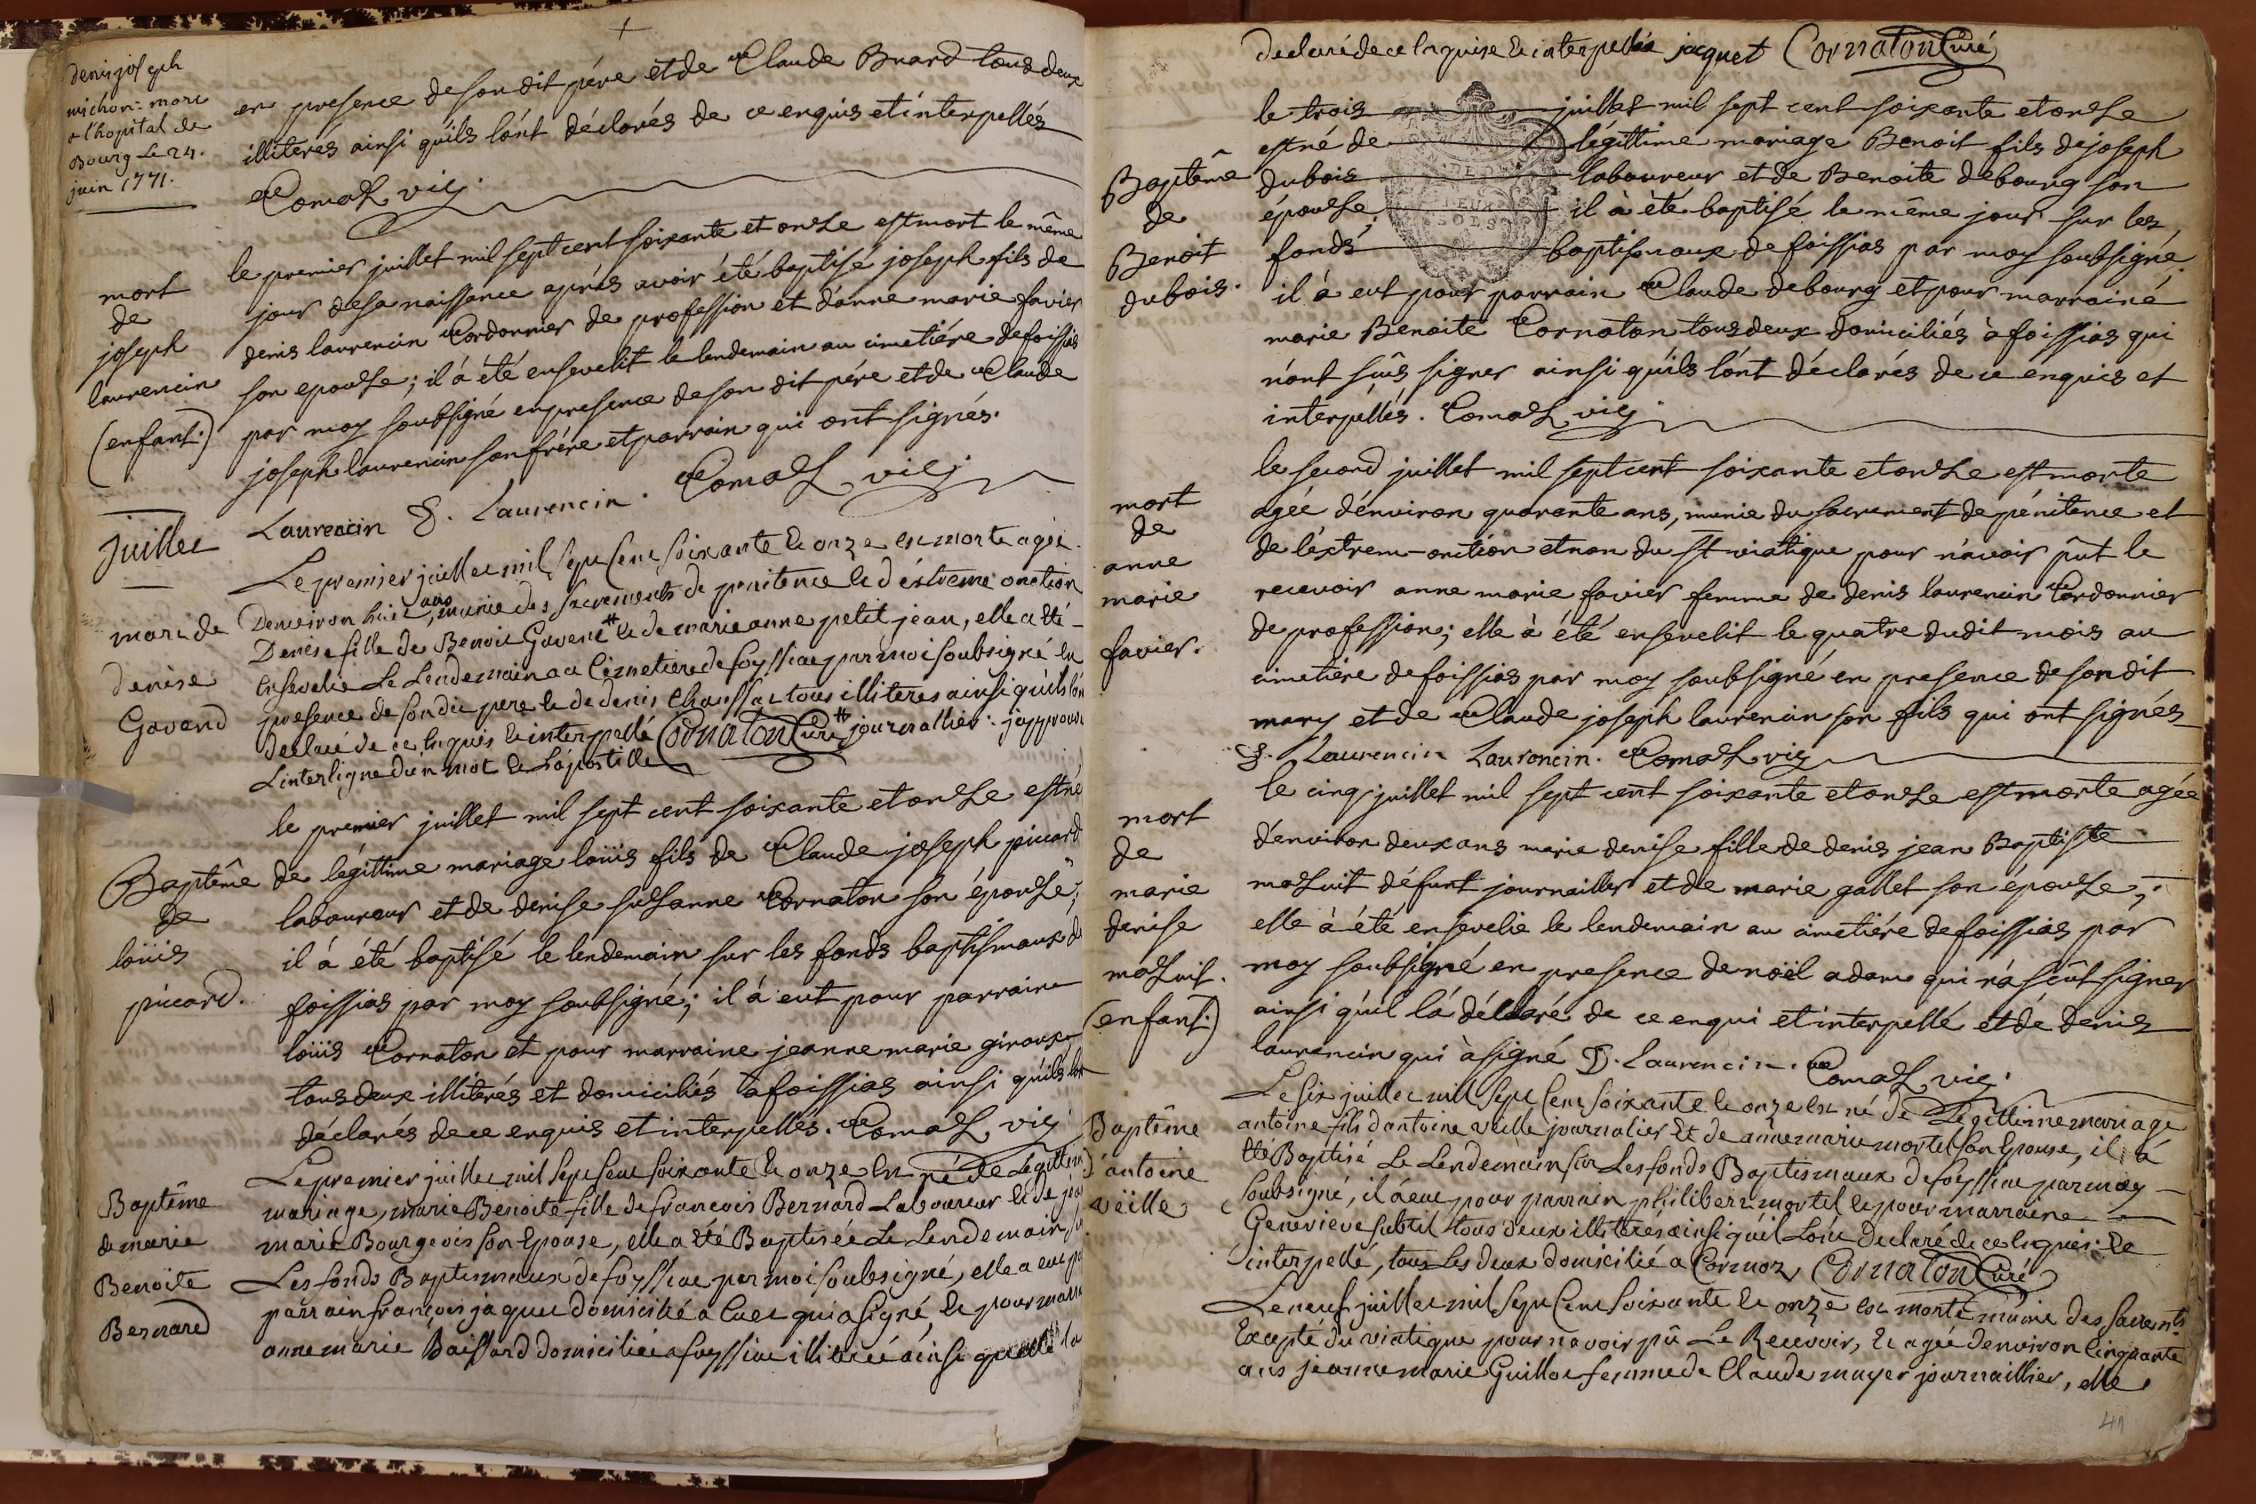 denis joseph
michon mort
a l'hopital de
Bourg le 24.
juin 1771.
en presence de son dit pére et de Claude Buard tous deux
illiterés ainsi qu'ils l'ónt déclarés de ce enquis et interpellés
Comas vic.
mort
de
joseph
laurencin
(enfant.)
le premier juillet mil sept cent soixante et onse est mort le même
jour de sa naissance aprés avoir été baptisé joseph fils de
denis laurencin Cordonnier de profession et d'anne marie favier
son epouse; il á été ensevelit le lendemain au cimetiére de foissias
par moy soubsigné en presence de son dit pére et de Claude
joseph laurencin son frére et parrain qui ont signés.
Laurencin D. Laurencin. Comas vic.
juillet
mort de
denise
Gavand
Le premier juillet mil sept Cent soixante & onze est morte agée
Denviron huit ans, munie des sacrements de penitence & d'éxtreme onction
Denise fille de Benoit Gavend # & de marie anne petit jean, elle a été
Ensevelie Le Lendemain au Cimetiere de foyssiat par moi soubsigné en
presence de son dit pere & de denis Chaussat tous illiteres ainsi qu'ils l'on
declaré de ce Enquis & interpellé Cornaton Curé # journallier j'approuve
L'interligne d'un mot & L'apostille
Baptême
de
loüis
picard.
le premier juillet mil sept cent soixante et onse est né
de légittime mariage loüis fils de Claude joseph picard
laboureur et de denise susanne Cornaton son épouse;
il á été baptisé le lendemain sur les fonds baptismaux de
foissias par moy soubsigné; il á eut pour parrain
loüis Cornaton et pour marraine jeanne marie giroux
tous deux illiterés et domiciliés á foissias ainsi qu'ils l'on
déclarés de ce enquis et interpellés. Comas vic.
Baptême
de marie
Benoite
Bernard
Le premier juillet mil sept Cent soixante & onze Est née de Legittime
mariage, marie Benoite fille de francois Bernard Laboureur & de jea
marie Bourgeois son Epouse, elle a été Baptisée Le Lendemain su
Les fonds Baptismaux de foyssiat par moi soubsigné, elle a eut po
parrain françois jaquet domicilié a Cuet qui a signé, & pour marr
anne marie Boissard domiciliée a foyssiat illiterée áinsi quelle la
declaré de ce Enquise & interpellée jacquet Cornaton Curé
Baptême
de
Benoit
dubois.
le trois juillet mil sept cent soixante et onse
est né de légittime mariage Benoit fils de joseph
dubois laboureur et de Benoite debourg son
épouse. il á été baptisé le même jour sur les
fonds baptismaux de foissias par moy soubsigné
il á eut pour parrain Claude debourg et pour marraine
marie Benoite Cornaton tous deux domiciliés á foissias qui
n'ont sûs signer ainsi qu'ils l'ónt déclarés de ce enquis et
interpellés. Comas vic.
mort
de
anne
marie
favier.
le second juillet mil sept cent soixante et onse est morte
agée d'environ quarante ans, munie du sacrement de pénitence et
de l'éxtrem-onction et non du St viatique pour n'avoir pût le
recevoir anne marie favier femme de denis laurencin Cordonnier
de profession; elle á été ensevelit le quatre dudit mois au
cimetiére de foissias par moy soubsigné en presence de son dit
mary et de Claude joseph laurencin son fils qui ont signés
D. Laurencin Laurencin. Comas vic
mort
de
marie
denise
masuit.
(enfant.)
le cinq juillet mil sept cent soixante et onse est morte agée
d'environ deux ans marie denise fille de denis jean Baptiste
masuit défunt journaillier et de marie gallet son épouse;
elle á été ensevelie le lendemain au cimetiére de foissias par
moy soubsigné en presence de noël adam qui n'á sçût signer
ainsi qu'il l'á déclaré de ce enqui et interpellé et de denis
laurencin qui á signé D. Laurencin. Comas vic.
Baptême
d'antoine
vëille
Le six juillet mil sept Cent soixante & onze est né de Legittime mariage
antoine fils d'antoine veille journalier & de anne marie mortel son Epouse, il á
été Baptisé Le Lendemain sur Les fonds Baptismaux de foyssiat par moy
soubsigné, il á eut pour parrain philibert mortel & pour marraine
Genevieve subtil tous deux illiteres ainsi quil L'ont declaré de ce Enquis &
interpellé, tous Les deux domicilié a Cormoz Cornaton Curé
Le neuf juillet mil sept Cent soixante & onze est morte munie des sacremts
Excepté du viatique pour n'avoir pû Le Recevoir, & agée denviron Cinquante
ans jeanne marie Guillot femme de Claude mayer journaillier, elle
41